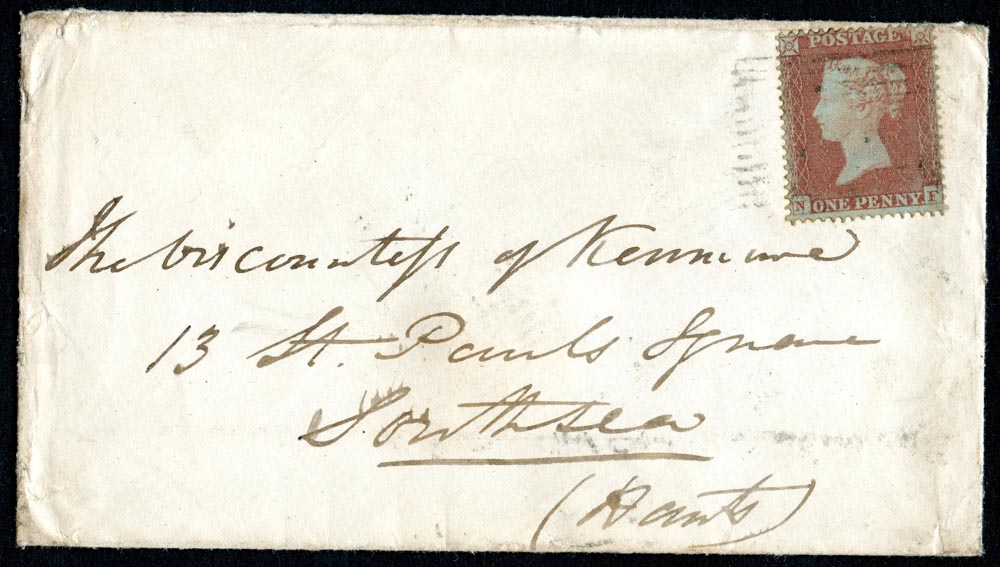 POSTAGE
ONE PENNY
N
The Viscountess of Kenmure
13 St. Pauls Square
Southsea
(Hants)